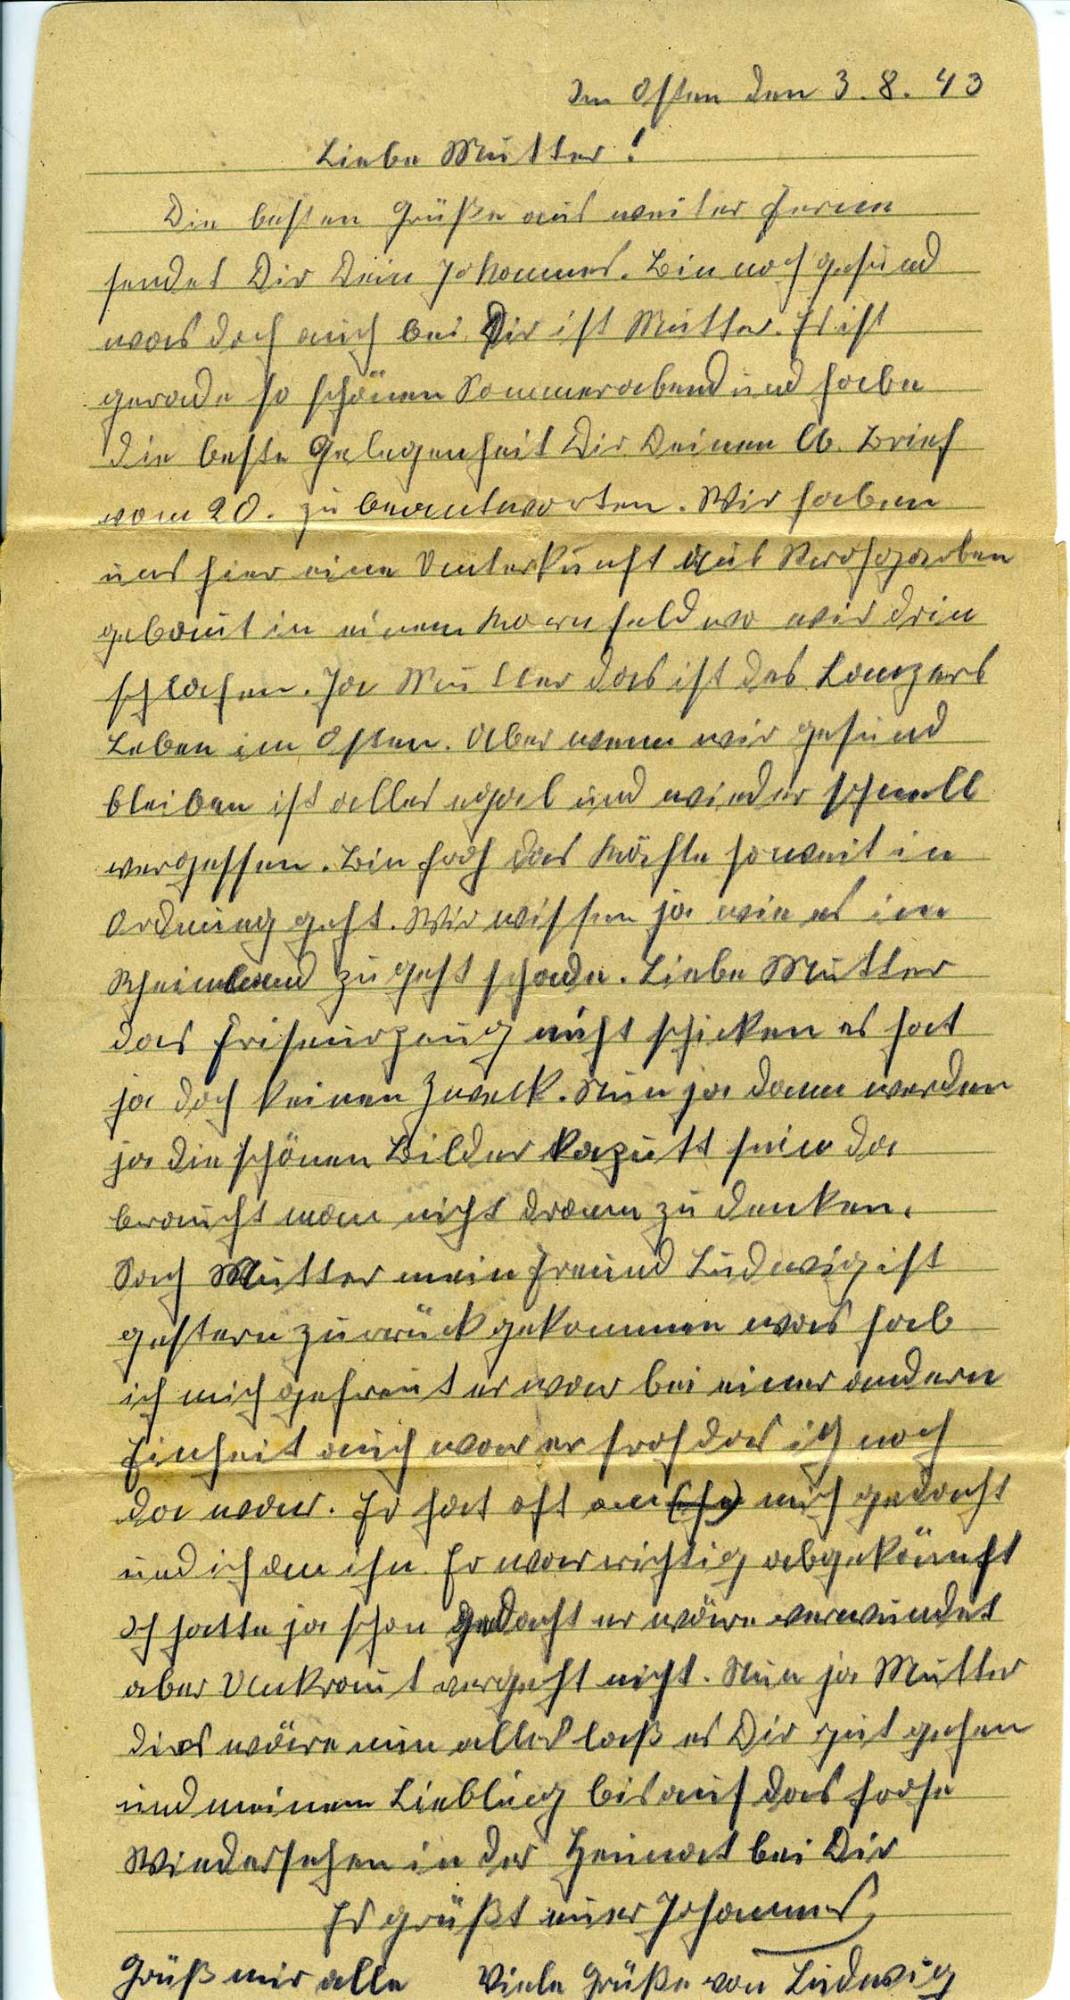 Im Osten den 3.8.43
Liebe Mutter!
Die besten Grüße aus weiter Ferne
sendet Dir Dein Johannes. Bin noch gesund
was doch auch bei Dir ist Mutter. Es ist
gerade so schönen Sommerabend und habe
die beste Gelegenheit Dir Deinen lb. Brief
vom 20. zu beantworten. Wir haben
uns hier eine Unterkunft aus
gebaut in einem Kornfeld wo wir drin
schlafen. Ja Mutter das ist des Lanzers
Leben im Osten. Aber wenn wir gesund
bleiben ist alles egal und wieder schnell
vergessen. Bin froh das soweit in
Ordnung geht. Wir wissen ja wie es im
Rheinland zu geht schade. Liebe Mutter
das Friseurzeug nicht schicken es hat
ja doch keinen Zweck. Nun ja dann werden
ja die schönen Bilder kaputt sein da
braucht man nicht dran zu denken.
Sag Mutter mein Freund Ludwig ist
gestern zurrück gekommen was hab
ich mich gefreut er war bei einer andern
Einheit auch war er froh das ich noch
da war. Er hat oft an mich gedacht
und ich an ihn. Er war richtig abgekämpft
Ich hatte ja schon gedacht er wäre verwundet
aber Unkraut vergeht nicht. Nun ja Mutter
dies wäre nun alles laß es Dir gut gehen
und meinem Liebling bis auf das frohe
Wiedersehen in der Heimat bei Dir
Es grüßt euer Johannes
Grüß mir alle Viele Grüße von Ludwig